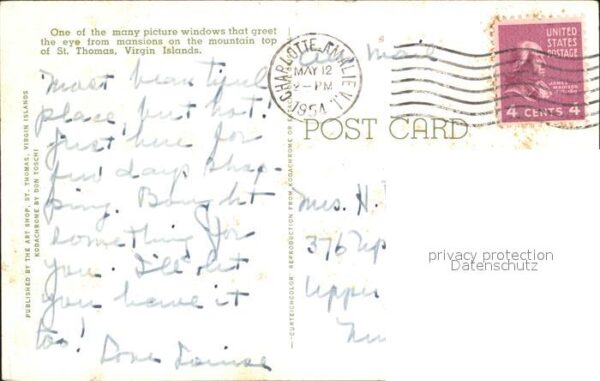 One of the many picture windows that greet
the eye from mansions on the mountain top
of St. Thomas, Virgin Islands.
Most beautiful
place, but hot!
Just here for
few days shop-
ping. Bought
something for
you. I'll let
you have it
too!
Love Louise
PUBLISHED BY THE ART SHOP, ST. THOMAS, VIRGIN ISLANDS
KODACHROME BY DON TOSCHI
CURTEICHCOLOR REPRODUCTION FROM KODACHROME OR
Air Mail
CHARLOTTE AMALIE V.I.
MAY 12
2-PM
1954
UNITED
STATES
POSTAGE
JAMES
MADISON
4 CENTS 4
POST CARD
Mrs. H.
376 Up
Upper
privacy protection
Datenschutz